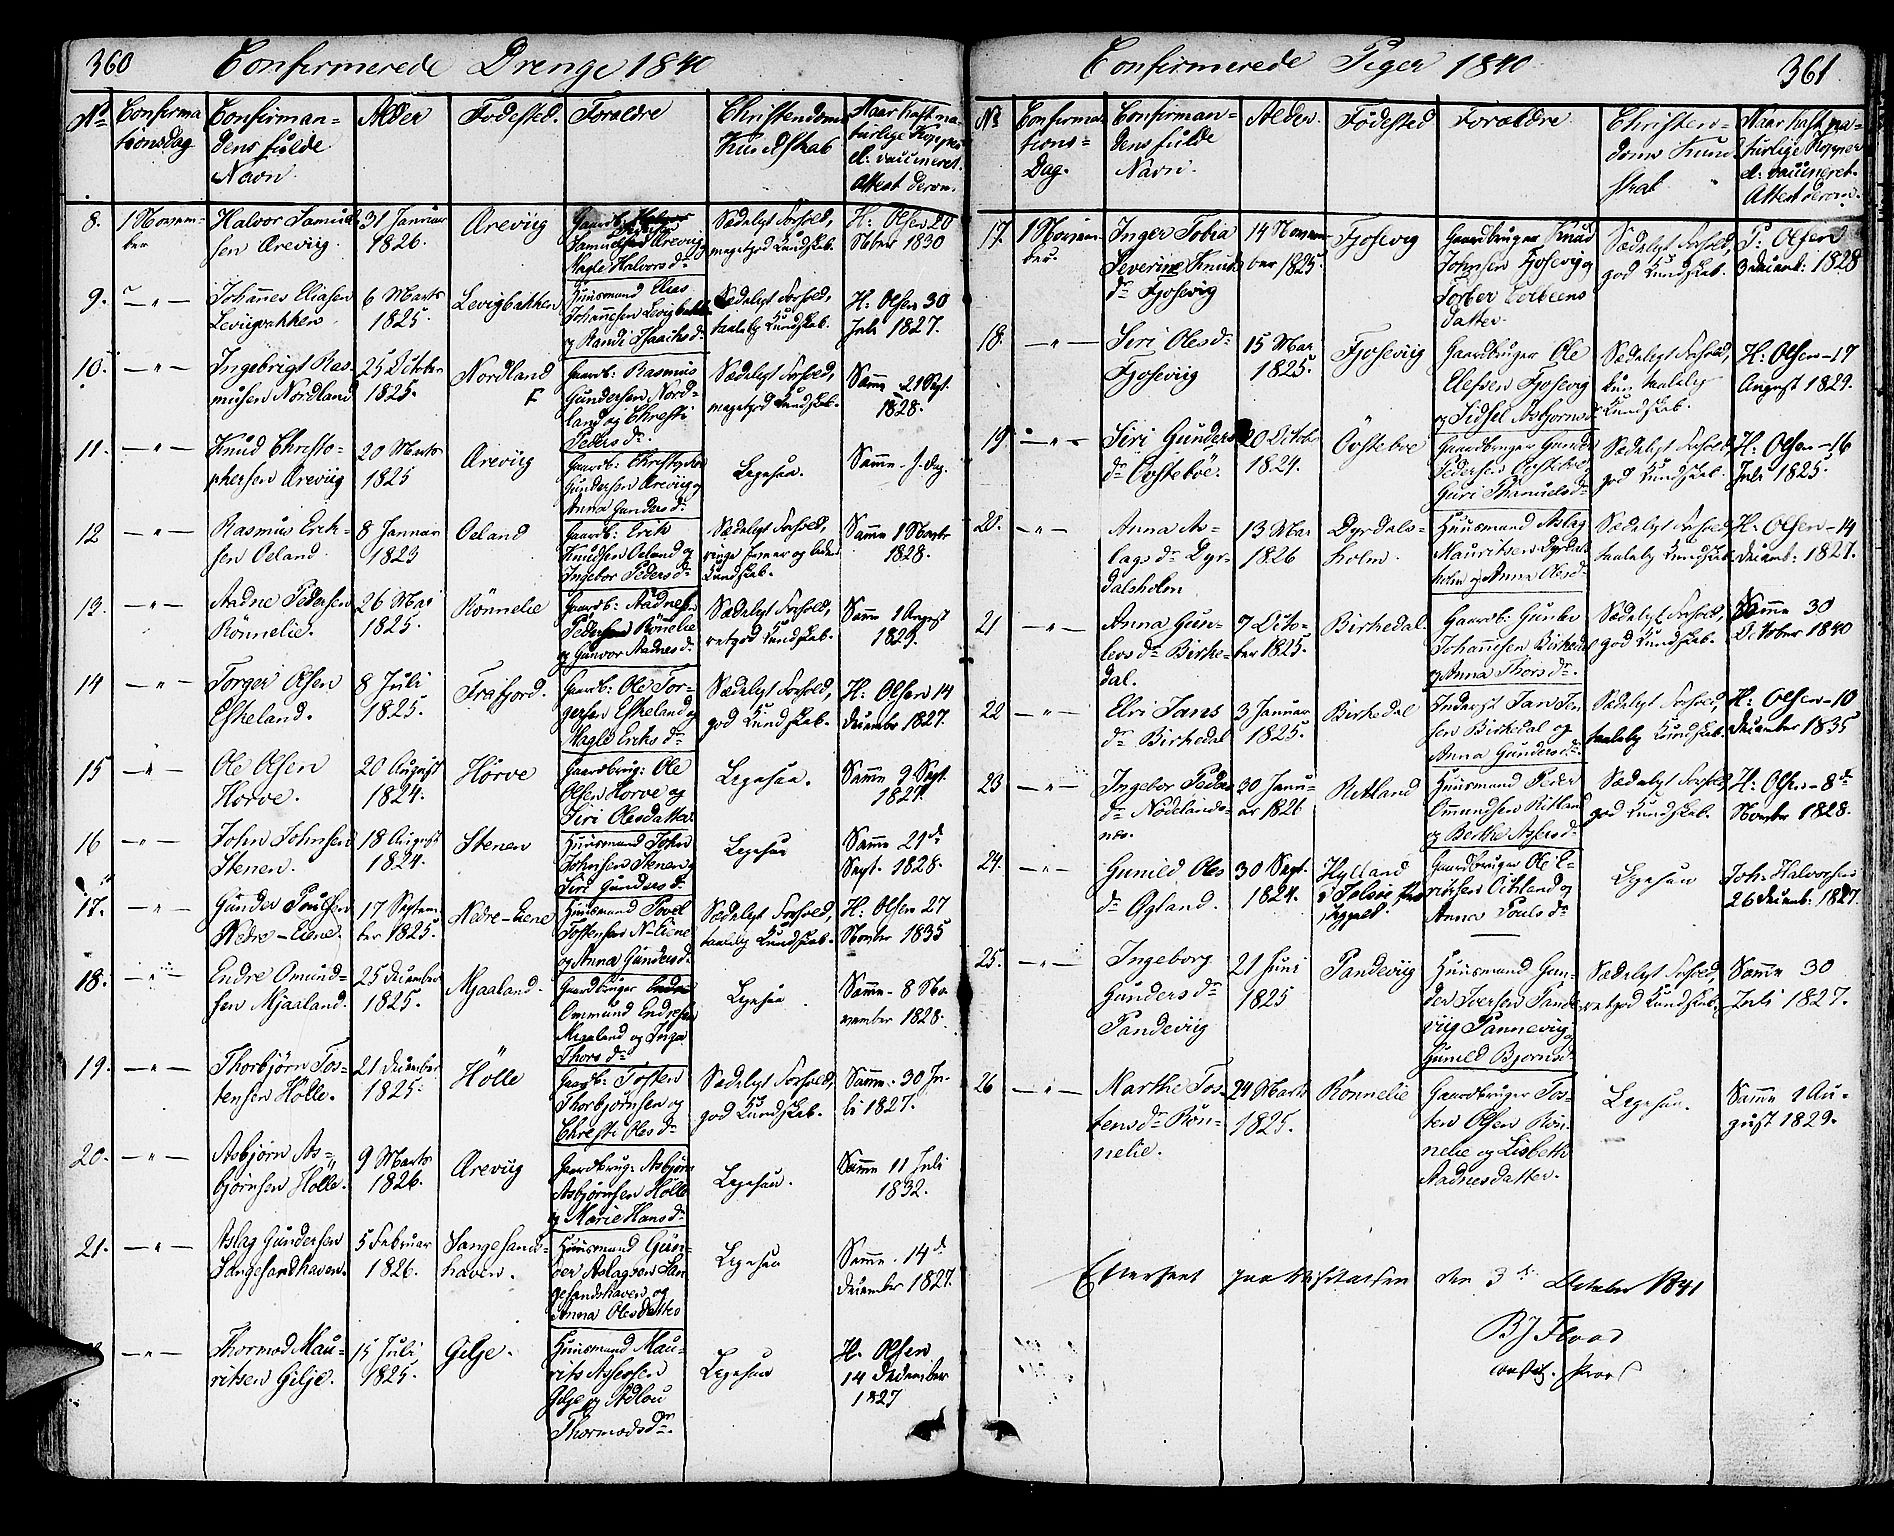 360 Confirmerede Drenge 1840
No Confirmationsdag Confirmandens fulde Navn Alder Födested. Forældre Christendoms Kundskab Naar haft naturlige Kopper el: vaccineret. Attest derom.
8. 1 November Halvor Samuelsen Ørevüg. 31 Januar 1826. Ørevüg Gaardb: Samuelsen Ørevüg Magle Halvorsdr Sædeligt Forhold, megetgod Kundskab. H: Olsen 20 Novbr 1830
9. — " — Johannes Eliasen Levigbakken 6 Marts 1825. Levigbakken Huusmand Elias Johannesen Levigbakken og Randi Isaachsdr Sædeligt Forhold, taalelig Kundskab. H: Olsen 30 Juli 1827.
10. — " — Ingebrigt Rasmusen Nordland 25 October 1825. Nordland F Gaardb: Rasmus Gundersen Nordland og Christi Pedersdr. Sædeligt Forhold, megetgod Kundskab. Samme 21 Sept. 1828.
11. — " — Knud Christophersen Ørevüg 20 Marts 1825 Ørevüg Gaardb: Christopher Gundersen Ørevüg og Anna Gundersdr Ligesaa. Samme s. Dag.
12 — " — Rasmus Eriksen Oeland 8 Januar 1823 Oeland Gaardb: Erik Knudsen Oeland og Ingebor Pedersdr Sædeligt Forhold, ringe Evner og liden Kundskab. Samme 1 Novbr 1828.
13. — " — Aadne Pedersen Rönnelie. 26 Mai 1825. Rönnelie Gaardb: Aadnesen Pedersen Rönnelie og Gunvor Aadnesdr Sædeligt Forhold, retgod Kundskab. Samme 1 August 1829.
14 — " — Torger Olsen Eskeland. 8 Juli 1825. Frafjord. Gaardb: Ole Torgersen Eskeland og Magle Eriksdr Sædeligt Forhold, god Kundskab. H: Olsen 14 Decembr 1827.
15 — " — Ole Olsen Horve. 20 August 1824. Hörve Gaardbrug: Ole Olsen Horve og Siri Olesdatter Ligesaa. Samme 9 Sept. 1824.
16 — " — John Johnsen Stenen. 18 August 1824. Stenen Huusmand John Johnsen Stenen og Siri Gundersdr. Ligesaa Samme 21de Sept. 1828.
17. — " — Gunder Poulsen Nedre-Eiene. 17 September 1825. Nedre-Eiene Huusmand Povel Tostensen N-Eiene og Anna Gundersdr Sædeligt Forhold, taalelig Kundskab. H: Olsen 27 Novber 1835
18. — " — Endre Omundsen Mjaaland. 25 December 1825. Mjaaland. Gaardbruger Ommund Endresen Mjaaland og Inga Thorsdr Ligesaa Samme. 8 November 1828.
19. — " — Thorbjörn Tostensen Hölle. 21 December 1825. Hölle Gaardb: Tosten Thorbjörnsen og Christi Olesdr Sædeligt Forhold, god Kundskab. Samme. 30 Juli 1827.
20. — " — Asbjörn Asbjörnsen Hölle. 9 Marts 1826. Ørevüg Gaardbrug: Asbjörn Asbjörnsen Hölle og Marie Hansdr Ligesaa. Samme 11 Juli 1832.
21. — " — Aslag Gundersen Sangesandhaven. 5 Februar 1826. Sangesandshaven. Huusmand Gunder Aslagsen Sangesandshaven og Anna Olesdatter Ligesaa Samme. 14de December 1827.
— " — Thormod Mauritsen Gilje. 15 Juli 1825. Gilje. Huusmand Maurits Gilje og Thormodsdr. Ligesaa H. Olsen 14 December 1827
Confirmerede Piger 1840 361
No Confirmations-Dag. Confirmandens fulde Navn. Alder. Födested Forældre Christendoms Kundskab Naar haft naturlige Kopper el: vaccineret. Attest derom.
17. 1 November. Inger Tobia Severine Knudsdr Fjosevig 14 November 1825. Fjosevig Gaardbruger Knud Johnsen Fjosevig og Torber Torbensdatter. Sædeligt Forhold, god Kundskab. P: Olsen 3 Decemb: 1828
18. — " — Siri Olesdr Fjosevüg 15 Mai 1825. Fjosevüg Gaardbruger Ole Elefsen Fjosevig og Sidsel Asbjornsdr Sædeligt Forhold, kun taalelig Kundskab. H: Olsen 17 August 1829.
19. — " — Siri Gundersdr Ovsteböe. 20 Octob 1824. Övsteboe Gaardbruger Gunder Pedersen Ovsteboe Guri Thanuelsdr Sædeligt Forhold god Kundskab. H: Olsen 16 Juli 1825.
20. — " — Anna Aslagsdr Dyrdalsholm 13 Mai 1826 Dyrdalsholm. Huusmand Aslag Mauritsen Dyrdalsholm og Anna Olesdr Sædeligt Forhold taalelig Kundskab. H: Olsen 14 Decemb: 1827.
21 — " — Anna Gunlevsdr Birkedal. 7 October 1825. Birkedal Gaardb: Gunlev Johannesen Birkedal og Anna Thorsdr. Sædeligt Forhold, god Kundskab. Samme 30 October 1840
22 — " — Elri Jansdr Birkedal 3 Januar 1825. Birkedal Inderst Jan Jensen Birkedal og Anna Gundersdr. Sædeligt Forhold, taalelig Kundskab. H: Olsen 10 December 1835
23 — " — Ingebor Pedersdr Nödelandsnæs. 30 Januar 1821 Retland Huusmand Peder Ommundsen Ritland og Berthe Sædeligt Forhold, god Kundskab. H: Olsen 8de November 1828.
24. — " — Gunild Olesdr Ogland. 30 Sept. 1824. Hylland Gaardbruger Ole og Anna Poulsdr Ligesaa Joh. Halvorsen 26 Decemb: 1827.
25. — " — Ingeborg Gundersdr Pandevüg 21 Juni 1825 Pandevüg Huusmand Gunder Iversen Pandevüg Pannevüg og Gunild Bjornsdr Sædeligt Forhold, retgod Kundskab. Samme 30 Juli 1827.
26 — " — Marthe Tostensdr Rönnelie. 24 Marts 1825. Rönnelie Gaardbruger Tosten Olsen Rönnelie og Lisbeth Aadnesdatter. Ligesaa. Samme 1 August 1829.
Efterseet paa Visitatsen den 3de October 1841
BJ Flood